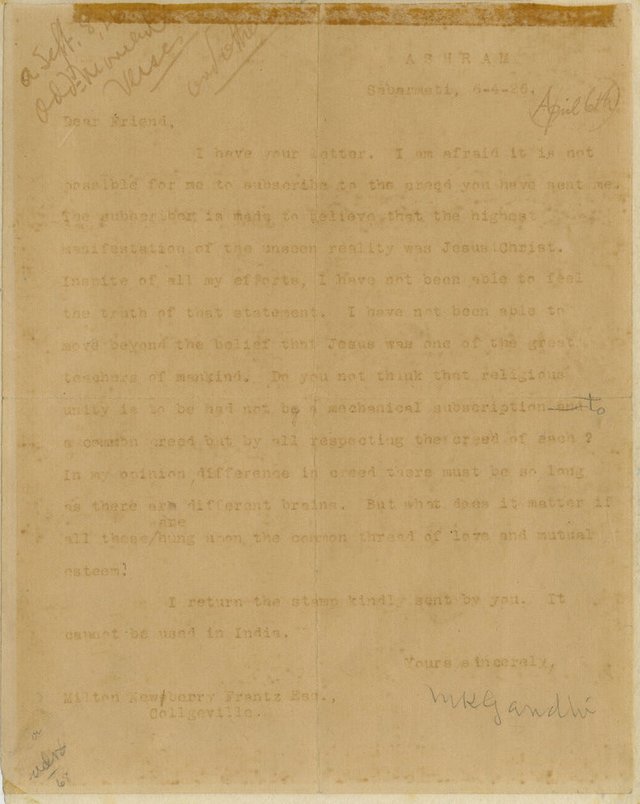 a Sept. 8,
add
Verse
ASHRAM
Sabarmati, 6-4-26.
(April 6th)
Dear Friend,
I have your letter. I am afraid it is not
possible for me to subscribe to the creed you have sent me.
The subscriber is made to believe that the highest
manifestation of the unseen reality was Jesus Christ.
Inspite of all my efforts, I have not been able to feel
the truth of that statement. I have not been able to
move beyond the belief that Jesus was one of the great
teachers of mankind. Do you not think that religious
unity is to be had not by a mechanical subscription and to
a common creed but by all respecting the creed of each ?
In my opinion, difference in creed there must be so long
as there are different brains. But what does it matter if
are
all these/hung upon the common thread of love and mutual
esteem?
I return the stamp kindly sent by you. It
cannot be used in India.
Yours sincerely,
MKGandhi
Milton Newberry Frantz Esq.,
Collgeville.